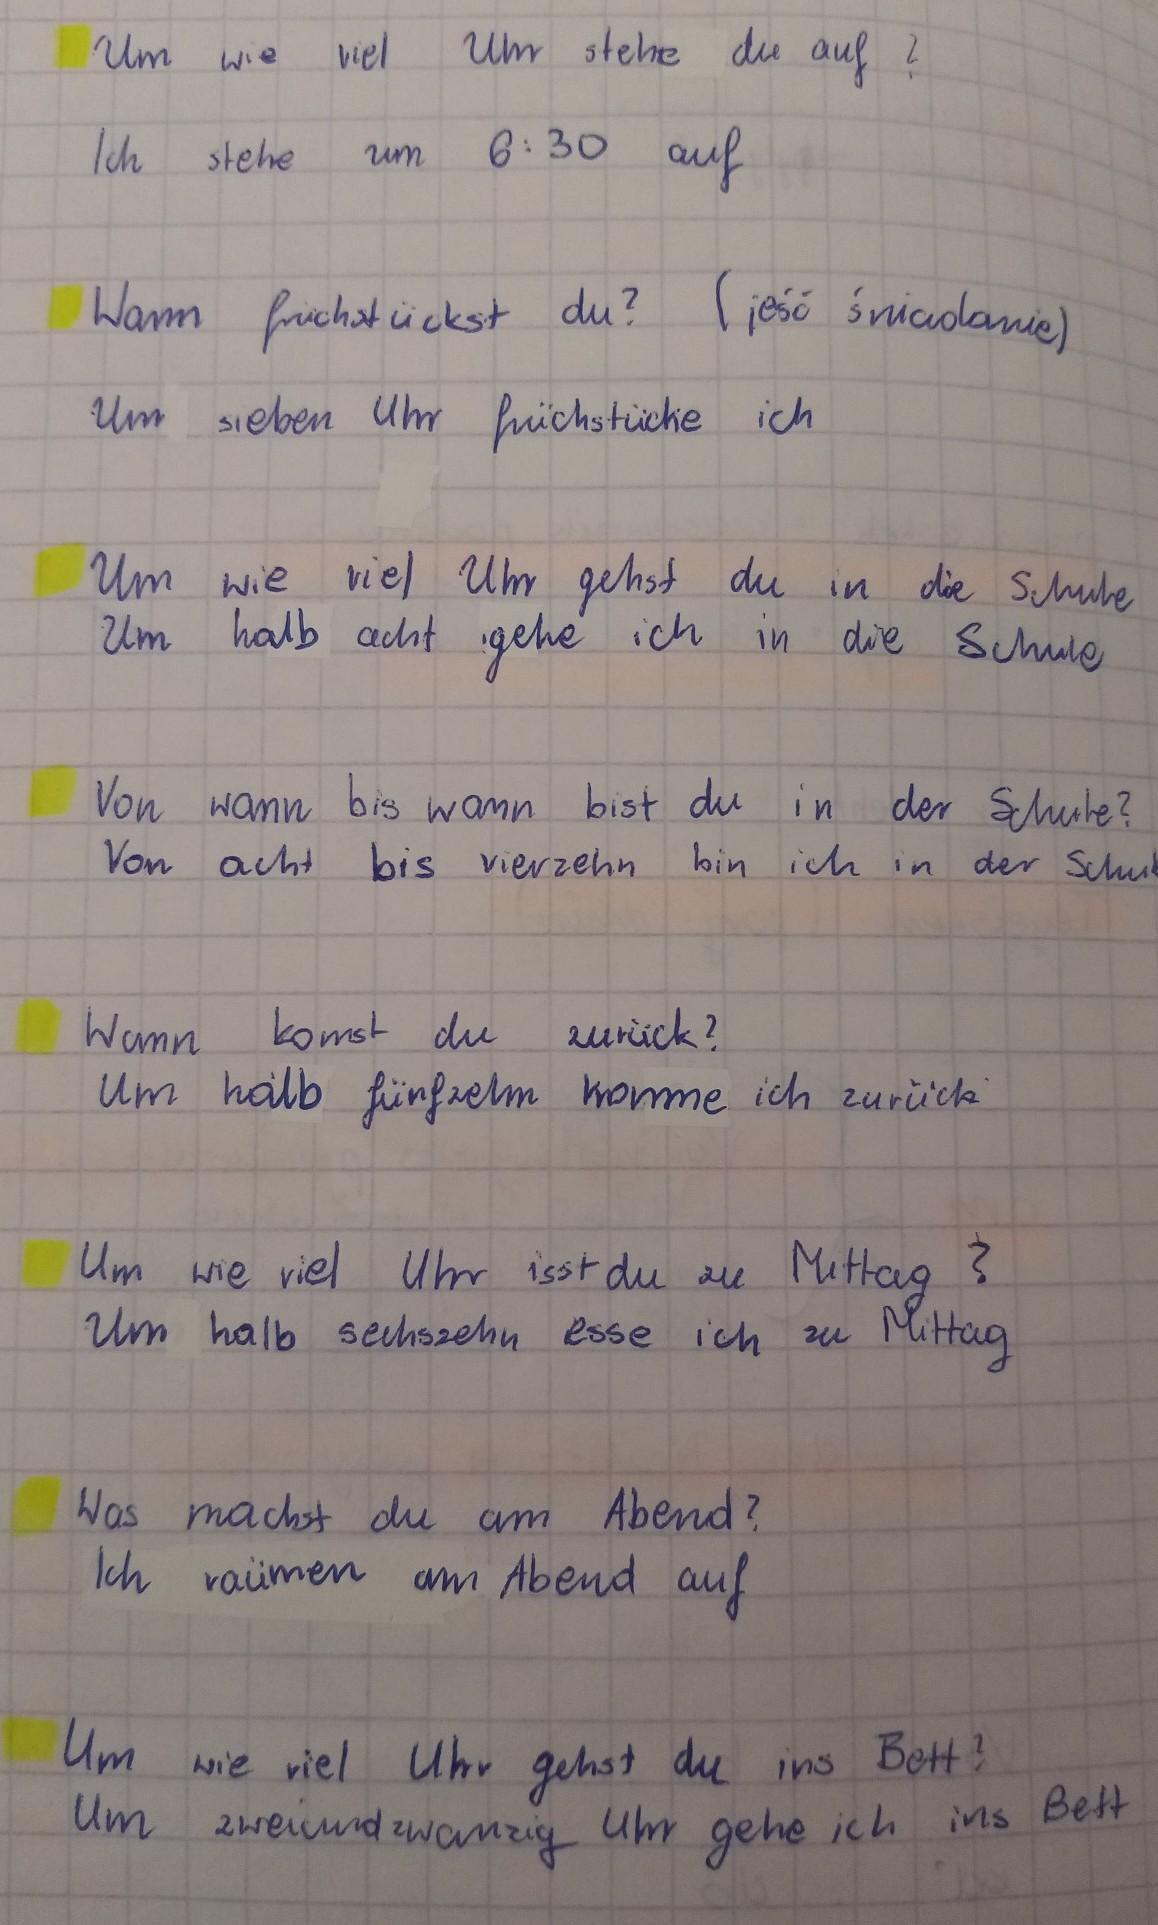 Um wie viel Uhr stehe du auf?
Ich stehe um 6:30 auf
Wann früchstückst du? (jeść śniadanie)
Um sieben Uhr früchstücke ich
Um wie viel Uhr gehst du in die Schule
Um halb acht gehe ich in die Schule
Von wann bis wann bist du in der Schule?
Von acht bis vierzehn bin ich in der Schul
Wann komst du zurück?
Um halb fünfzehn komme ich zurück
Um wie viel Uhr isst du zu Mittag?
Um halb sechszehn esse ich zu Mittag
Was machst du am Abend?
Ich raümen am Abend auf
Um wie viel Uhr gehst du ins Bett?
Um zweiundzwanzig Uhr gehe ich ins Bett